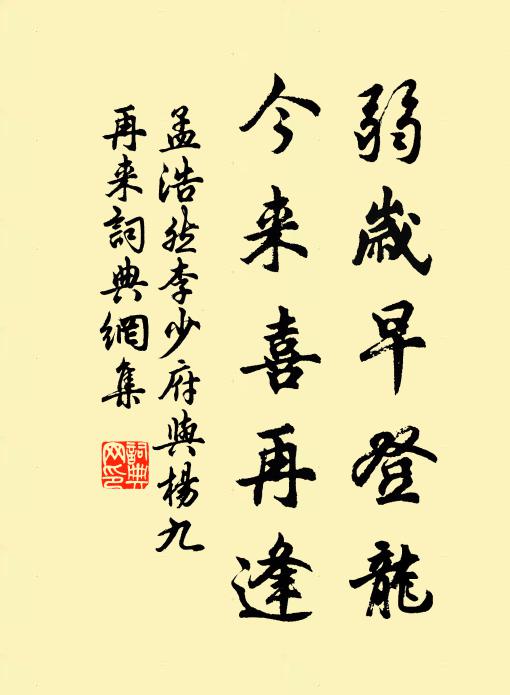 弱歲早登龍
今来喜再逢
孟浩然李少府與楊九
再来詞典網集
詞典网印